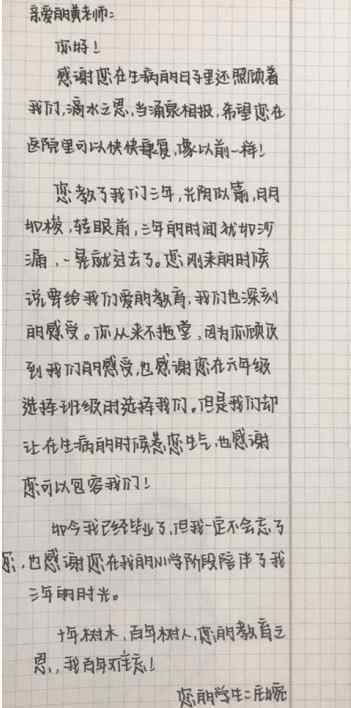 亲爱的黄老师:
你好!
感谢您在生病的日子里还照顾着
我们,滴水之恩,当涌泉相报,希望您在
医院里可以快快康复,像以前一样!
您教了我们三年,光阴似箭,日月
如梭,轻眼前,三年的时间就如沙
漏,一晃就过去了。您刚来的时候
说要给我们爱的教育,我们也深刻
的感受。你从来不拖堂,因为你顾及
到我们的感受,也感谢您在六年级
选择班级时选择我们。但是我们却
让在生病的时候惹您生气,也感谢
您可以包容我们!
如今我已经毕业了,但我一定不会忘了
您,也感谢您在我的小学阶段陪伴了我
三年的时光。
十年树木,百年树人,您的教育之
恩,我百年难忘!
您的学生: